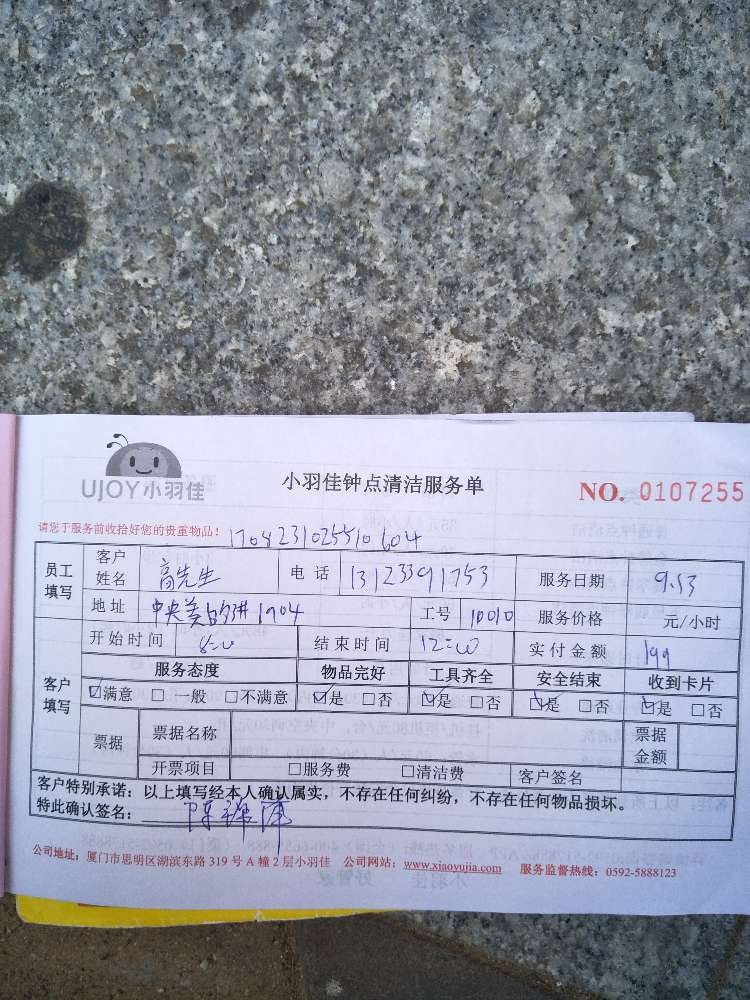 UJOY小羽佳
小羽佳钟点清洁服务单
NO. 0107255
请您于服务前收拾好您的贵重物品!
员工填写 客户姓名 高先生 电话 13123391753 服务日期
地址 中央美 1904 工号 10010 服务价格 元/小时
客户填写 开始时间 结束时间 12:00 实付金额 199
服务态度 物品完好 工具齐全 安全结束 收到卡片
☑满意 □一般 □不满意 ☑是 □否 ☑是 □否 ☑是 □否 ☑是 □否
票据 票据名称 票据金额
开票项目 □服务费 □清洁费 客户签名
客户特别承诺：以上填写经本人确认属实，不存在任何纠纷，不存在任何物品损坏。
特此确认签名：
公司地址：厦门市思明区湖滨东路 319 号 A 幢 2 层小羽佳 公司网站：www.xiaoyujia.com 服务监督热线：0592-5888123